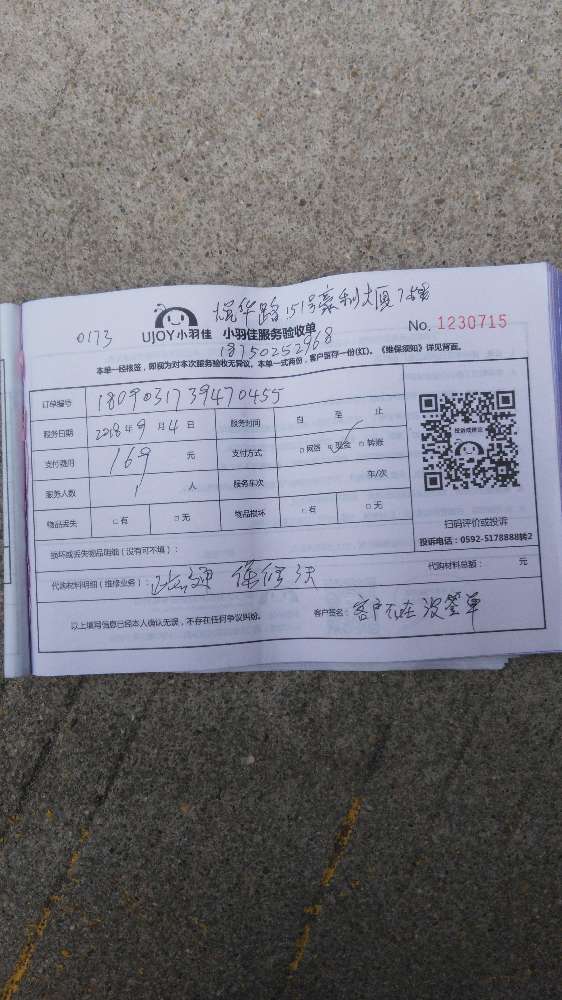 0173
151号豪利大厦7楼
UJOY小羽佳 小羽佳服务验收单 No. 1230715
18750252968
本单一经核签，即视为对本次服务验收无异议，本单一式两份，客户留存一份(红)。《维保须知》详见背面。
订单编号 1809031739470455
服务日期 2018年9月4日 服务时间 自 至 止
支付费用 169 元 支付方式 □网络 □现金 ✓ □转账
服务人数 1 人 服务车次 车/次
物品丢失 □有 □无 物品损坏 □有 □无
扫码评价或投诉
投诉电话：0592-5178888转2
损坏或丢失物品明细（没有可不填）：
代购材料明细（维修业务）： 疏通 保修 天 代购材料总额： 元
以上填写信息已经本人确认无误，不存在任何争议纠纷。 客户签名：客户不在没签单